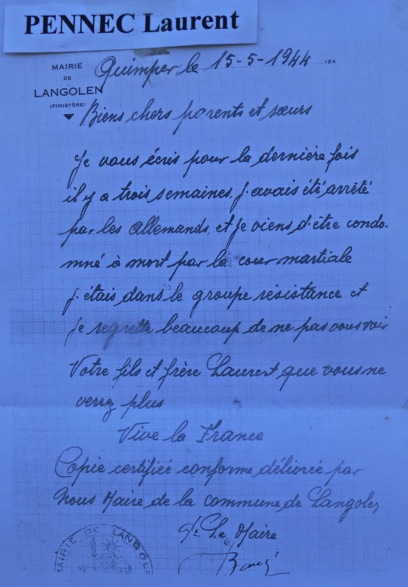 PENNEC Laurent
MAIRIE
DE
LANGOLEN
(FINISTÈRE)
Quimper le 15-5-1944 194
Biens chers parents et sœurs
Je vous écris pour la dernière fois
il y a trois semaines, j'avais été arrêté
par les Allemands, et je viens d'être condo-
mné à mort par la cour martiale
j'étais dans le groupe résistance et
je regrette beaucoup de ne pas vous voir
Votre fils et frère Laurent que vous ne
verrez plus
Vive la France
Copie certifiée conforme délivrée par
Nous Maire de la commune de Langolen
Le Maire
MAIRIE DE LANGOLE